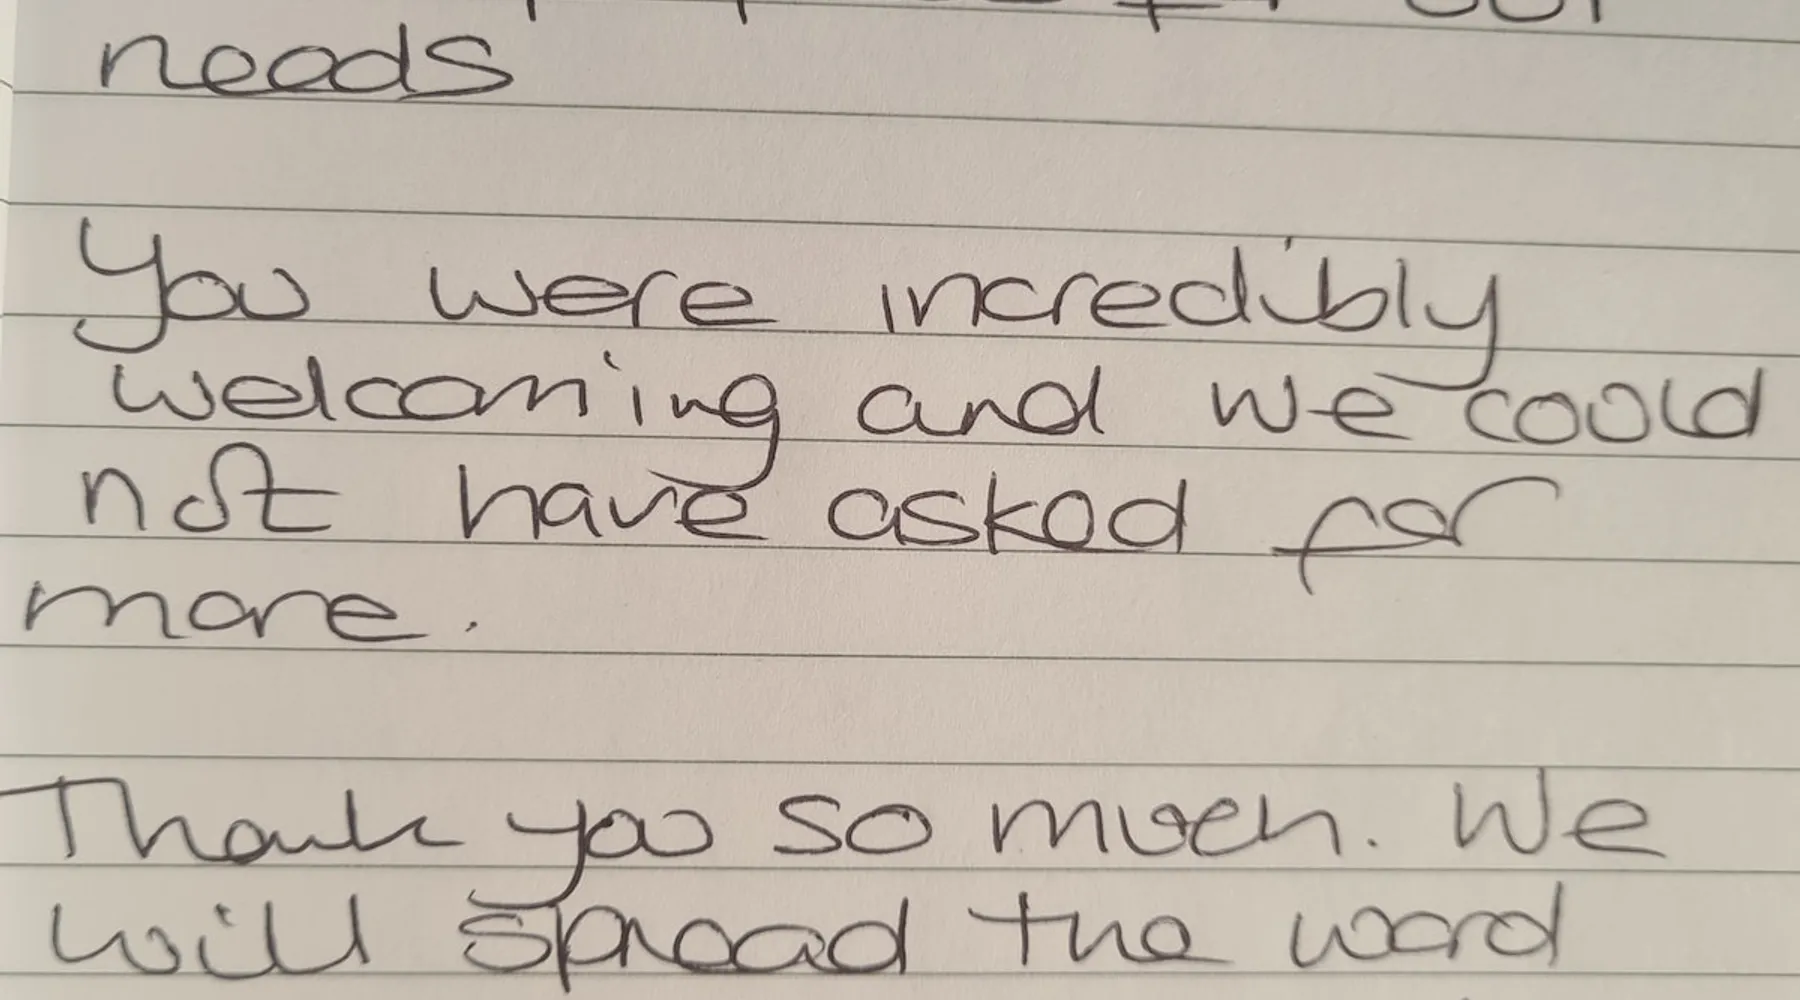 needs
You were incredibly
welcoming and we could
not have asked for
more.
Thank you so much. We
will spread the word